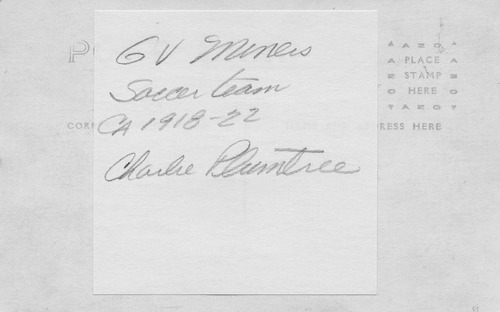 GV Miners
Soccer team
CA 1918-22
Charlie Plumtree
AZO
PLACE
STAMP
HERE
AZO
RESS HERE